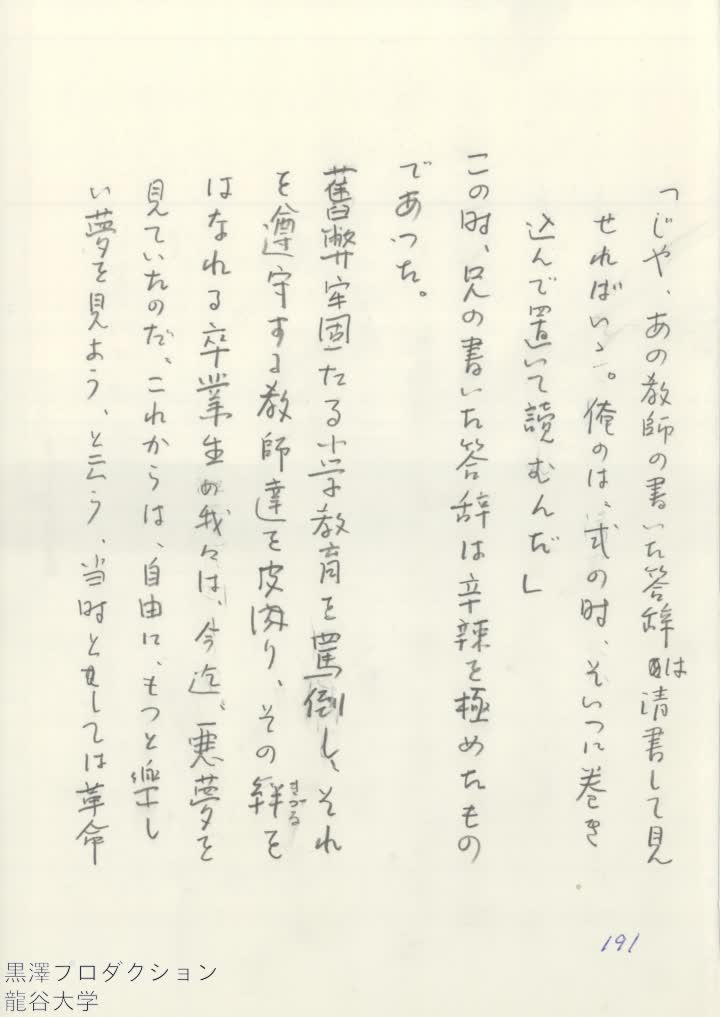 「じゃ、あの教師の書いた答辞は清書して見
せればいゝ。俺のは、式の時、そいつに巻き
込んで置いて読むんだ」
この時、兄の書いた答辞は辛辣を極めたもの
であつた。
舊弊牢固たる小学教育を罵倒し、それ
を遵守する教師達を皮肉り、その絆を
きづな
はなれる卒業生の我々は、今迄、悪夢を
見ていたのだ、これからは、自由に、もつと楽し
い夢を見よう、と云う、当時としては革命
191
黒澤プロダクション
龍谷大学